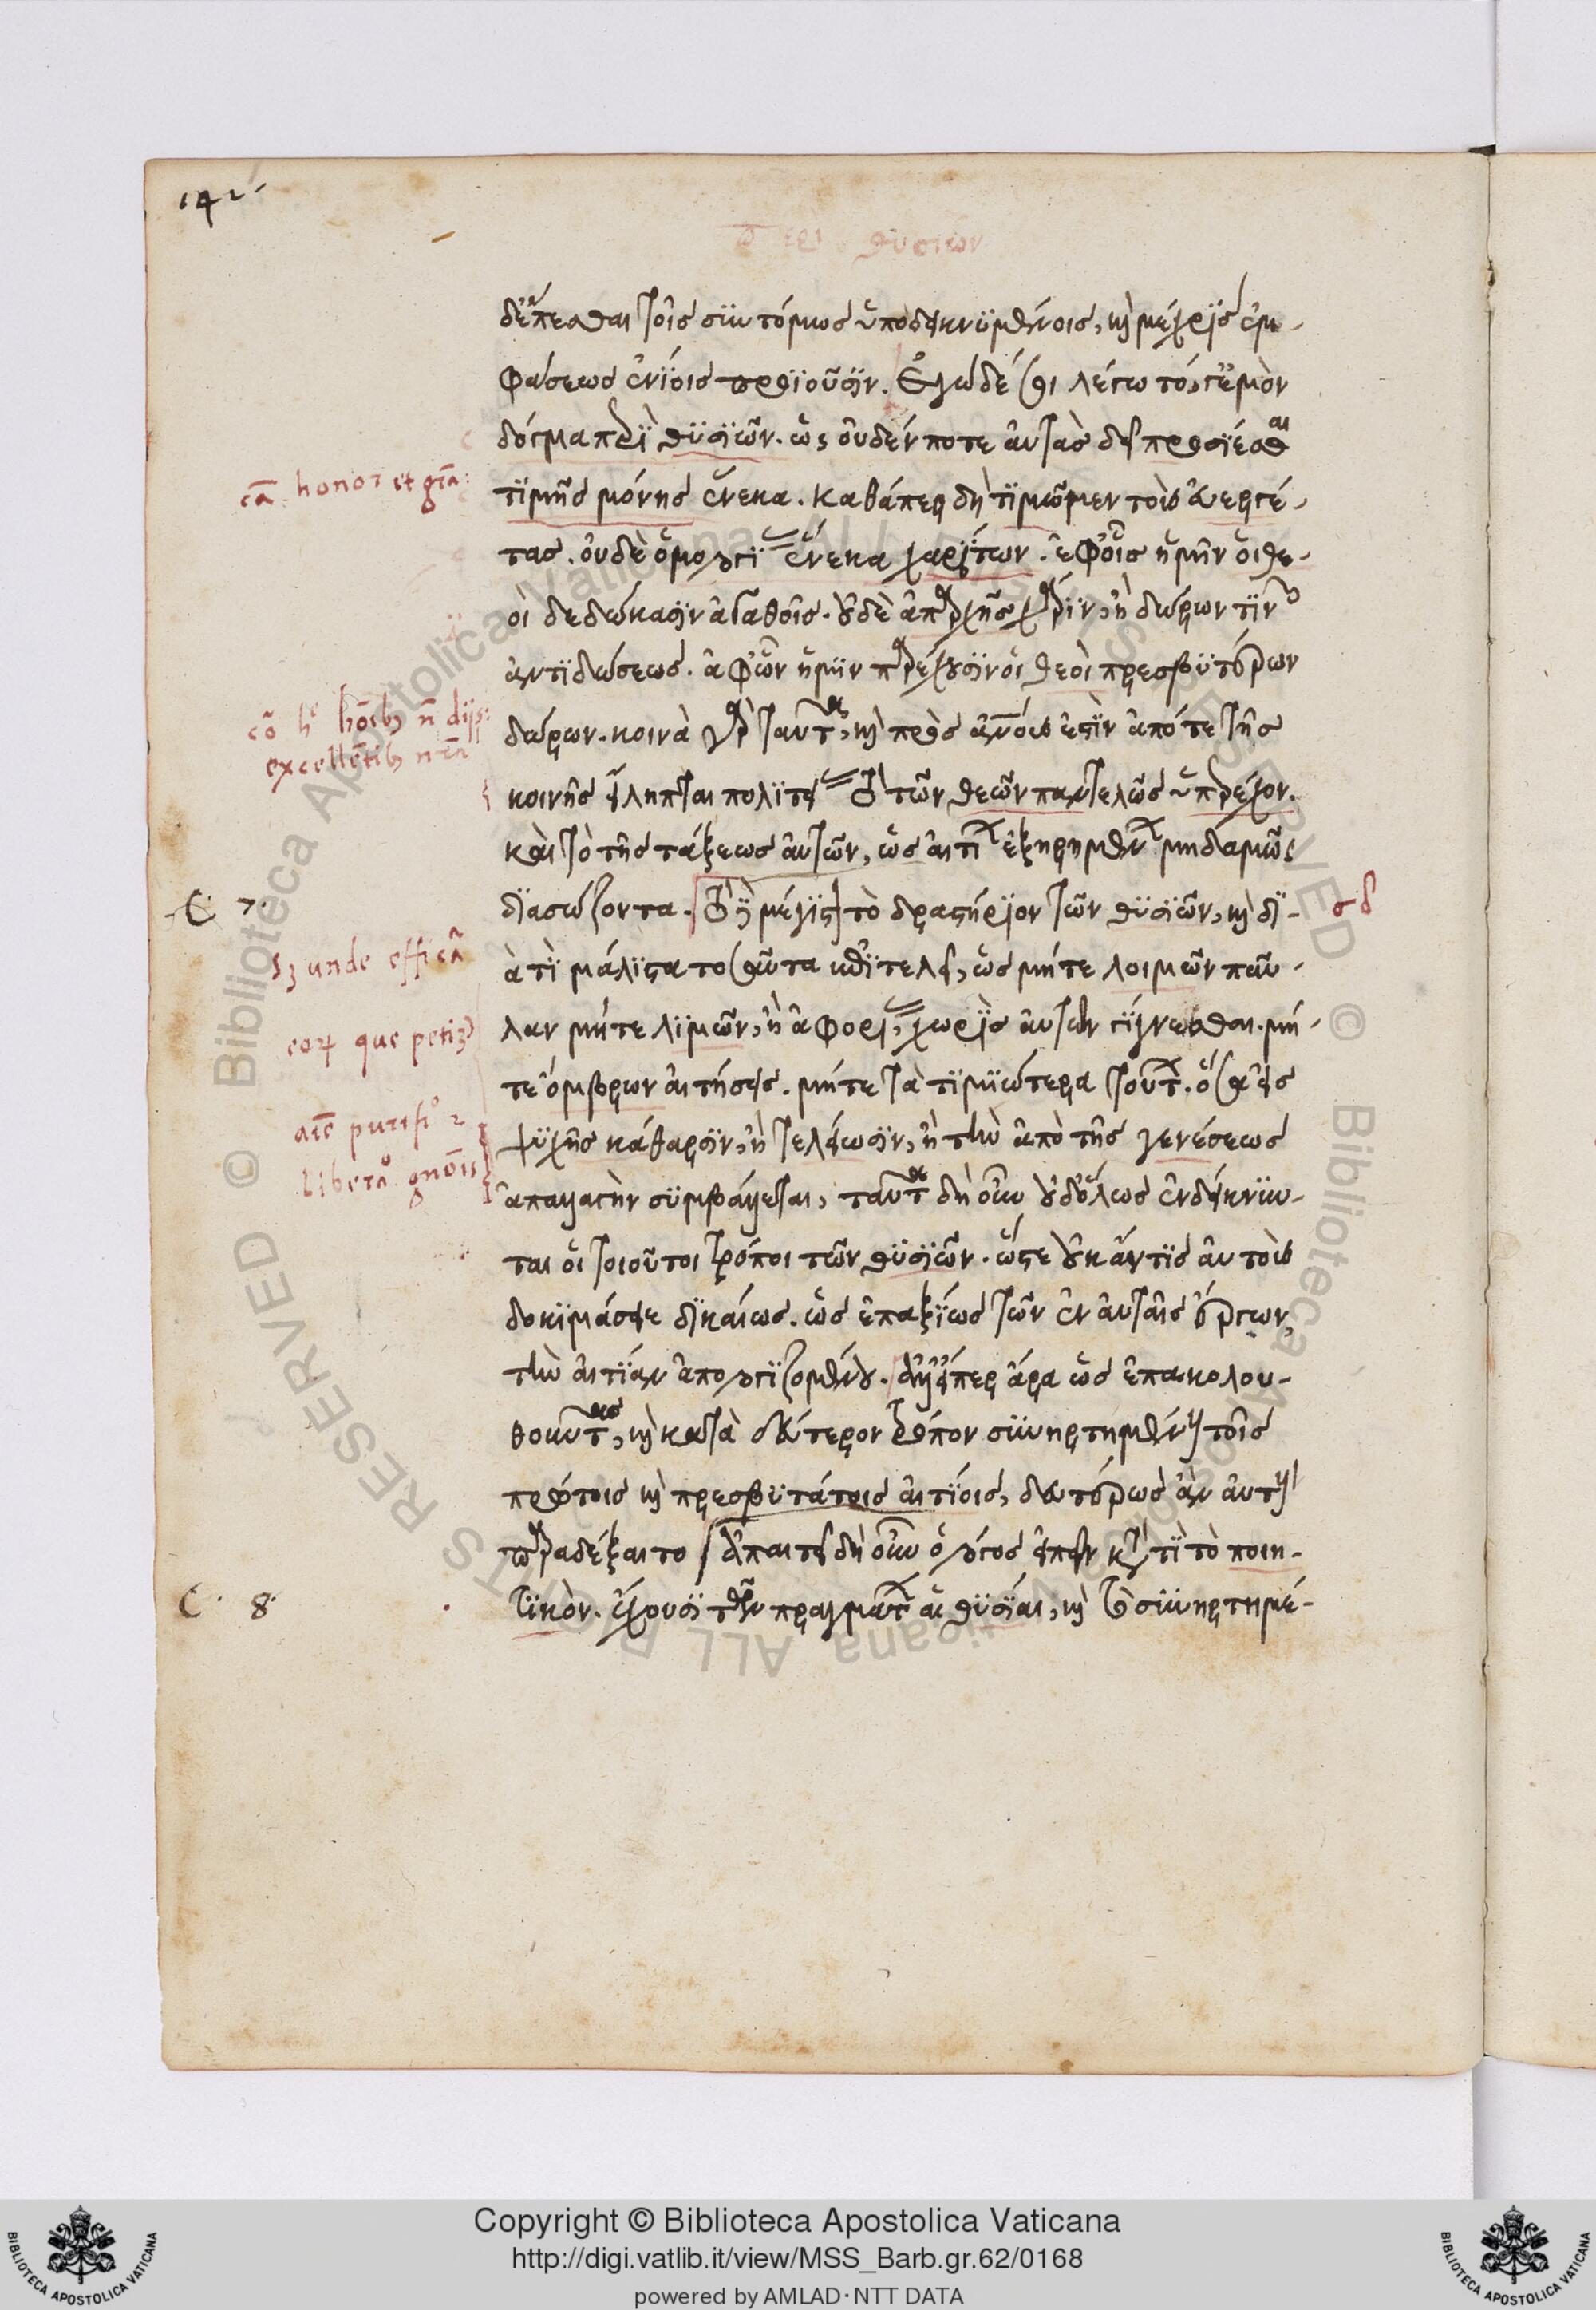 142
περὶ θυσιῶν
δὲ ἕπεσθαι τοῖς συντόμως ὑποδεικνυμένοις, καὶ μέχρις ἐμ-
φάσεως ἐνίοις προϊοῦσιν. Ἐγὼ δέ σοι λέγω τό, τε ἐμὸν
δόγμα περὶ θυσιῶν. ὡς οὐδέν ποτε αὐτὰς δεῖ προσίεσθαι
τιμῆς μόνης ἕνεκα. καθάπερ δὴ τιμῶμεν τοὺς εὐεργέ-
τας. οὐδὲ ὁμολογί(ας) ἕνεκα χαρίτων. ἐφ' οἷς ἡμῖν οἱ θε-
οὶ δεδώκασιν ἀγαθοῖς. οὐδὲ ἀπαρχῆς χάριν, ἢ δώρων τινὸς
ἀντιδώσεως. ἀφ' ὧν ἡμῖν παρέχουσιν οἱ θεοὶ πρεσβυτέρων
δώρων. κοινὰ γὰρ ταῦτα, καὶ πρὸς ἀνους ἐστὶν ἀπό τε τῆς
κοινῆς εἴληπται πολιτεί(ας) τὸ τῶν θεῶν παντελῶς ὑπερέχον.
καὶ τὸ τῆς τάξεως αὐτῶν, ὡς αἰτι ἐξῃρημέν μηδαμῶς
διασώζοντα. Τὸ δὲ μέγιστον τὸ δραστήριον τῶν θυσιῶν, καὶ δι-
ὰ τί μάλιστα τοσαῦτα ἐπιτελεῖ, ὡς μήτε λοιμῶν παῦ-
λαν μήτε λιμῶν, ἢ ἀφορί(ας), χωρὶς αὐτῶν γίγνεσθαι. μή-
τε ὄμβρων αἰτήσεις. μήτε τὰ τιμιώτερα τούτων. ὅσα εἰς
ψυχῆς κάθαρσιν, ἢ τελείωσιν, ἢ τὴν ἀπὸ τῆς γενέσεως
ἀπαλλαγὴν συμβάλλεται, ταῦτα δὴ οὖν οὐδ' ὅλως ἐνδείκνυν-
ται οἱ τοιοῦτοι τρόποι τῶν θυσιῶν. ὥστε οὐκ ἄν τις αὐτοὺς
δοκιμάσειε δικαίως. ὡς ἐπαξίως τῶν ἐν αὐταῖς ἔργων,
τὴν αἰτίαν ἀπολογιζομένου. Ἀλλ' εἴπερ ἄρα ὡς ἐπακολου-
θοῦντας, καὶ κατὰ δεύτερον τρόπον συνηρτημένους τοῖς
πρώτοις καὶ πρεσβυτάτοις αἰτίοις, δευτέρως ἂν αὐτοὺς
παραδέξαιτο Ἀπαιτεῖ δὴ οὖν ὁ λόγος εἰπεῖν κατὰ τί τὸ ποιη-
τικὸν. ἔχουσι τῶν πραγμάτων αἱ θυσίαι, καὶ τὸ συνηρτημέ-
cā honor et grā:
excellētibꝫ
C 7.
σδ
sꝫ unde efficā
eoꝝ que petiꝫ
aīe purifi
liberā gnōis
C. 8.
Copyright © Biblioteca Apostolica Vaticana
http://digi.vatlib.it/view/MSS_Barb.gr.62/0168
powered by AMLAD·NTT DATA
BIBLIOTECA APOSTOLICA VATICANA
BIBLIOTECA APOSTOLICA VATICANA